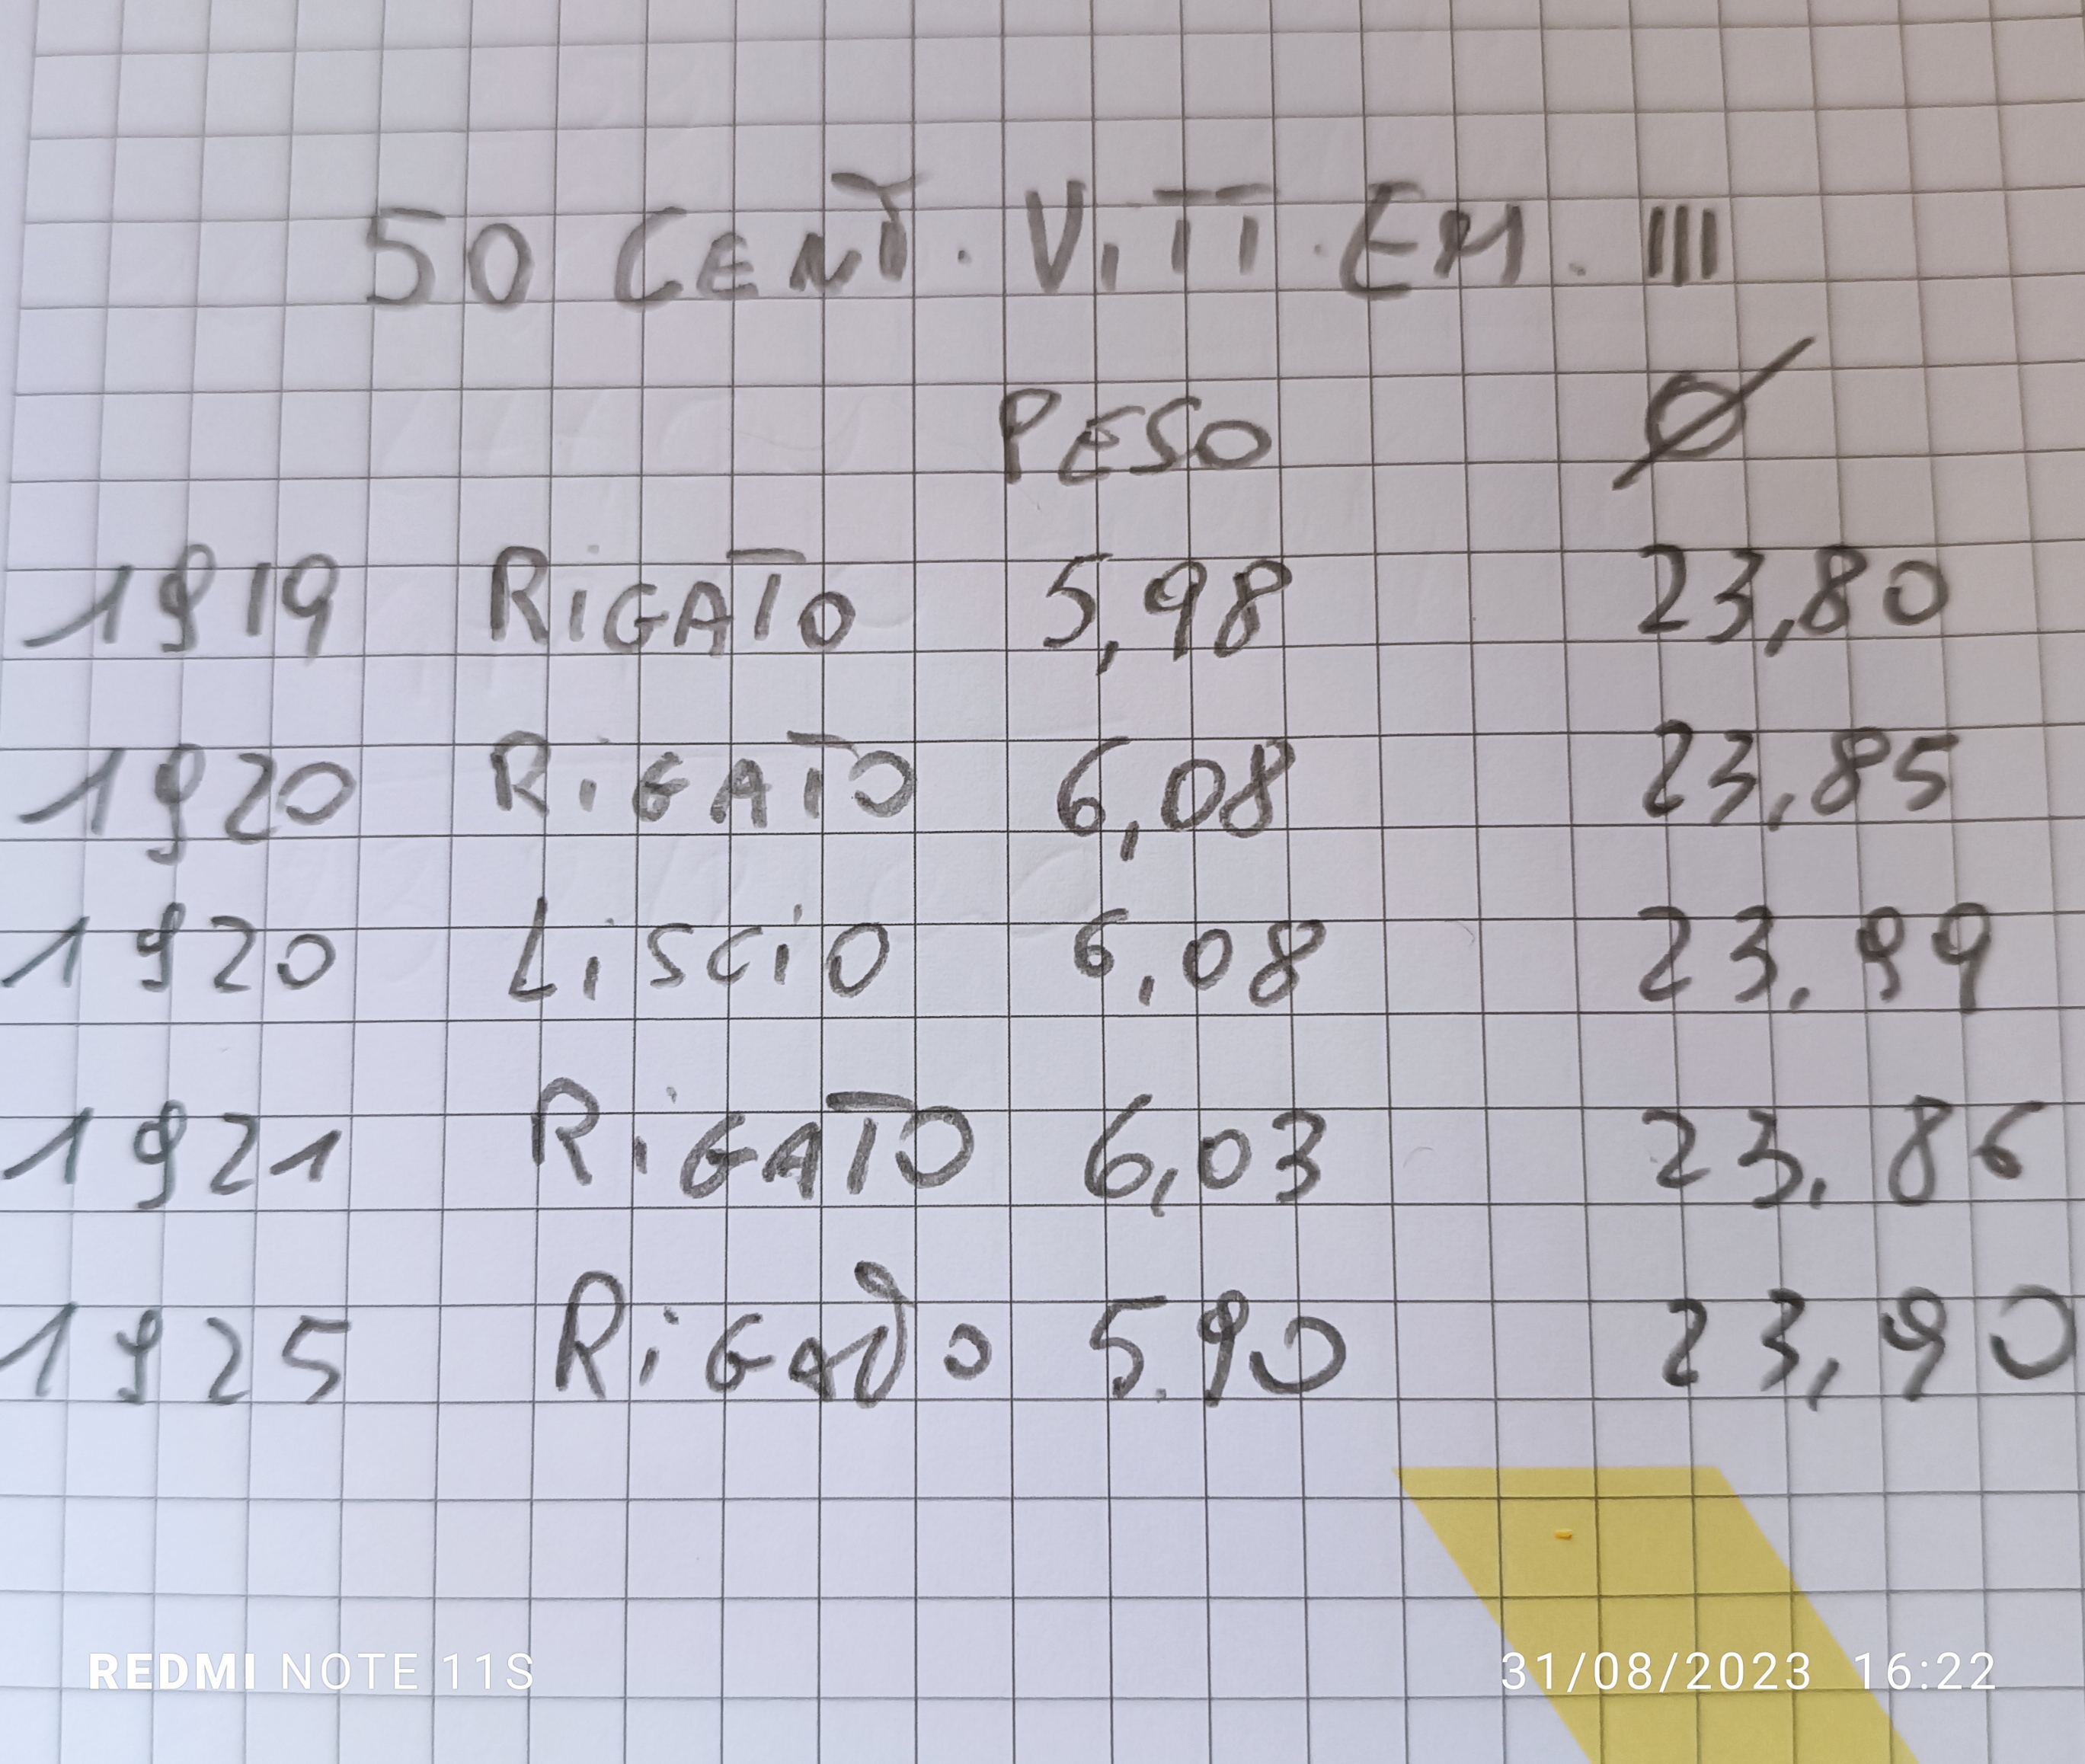 50 CENT. VITT. EM. III
PESO Ø
1919 RIGATO 5,98 23,80
1920 RIGATO 6,08 23,85
1920 LISCIO 6,08 23,99
1921 RIGATO 6,03 23,86
1925 RIGATO 5.90 23,90
REDMI NOTE 11S 31/08/2023 16:22